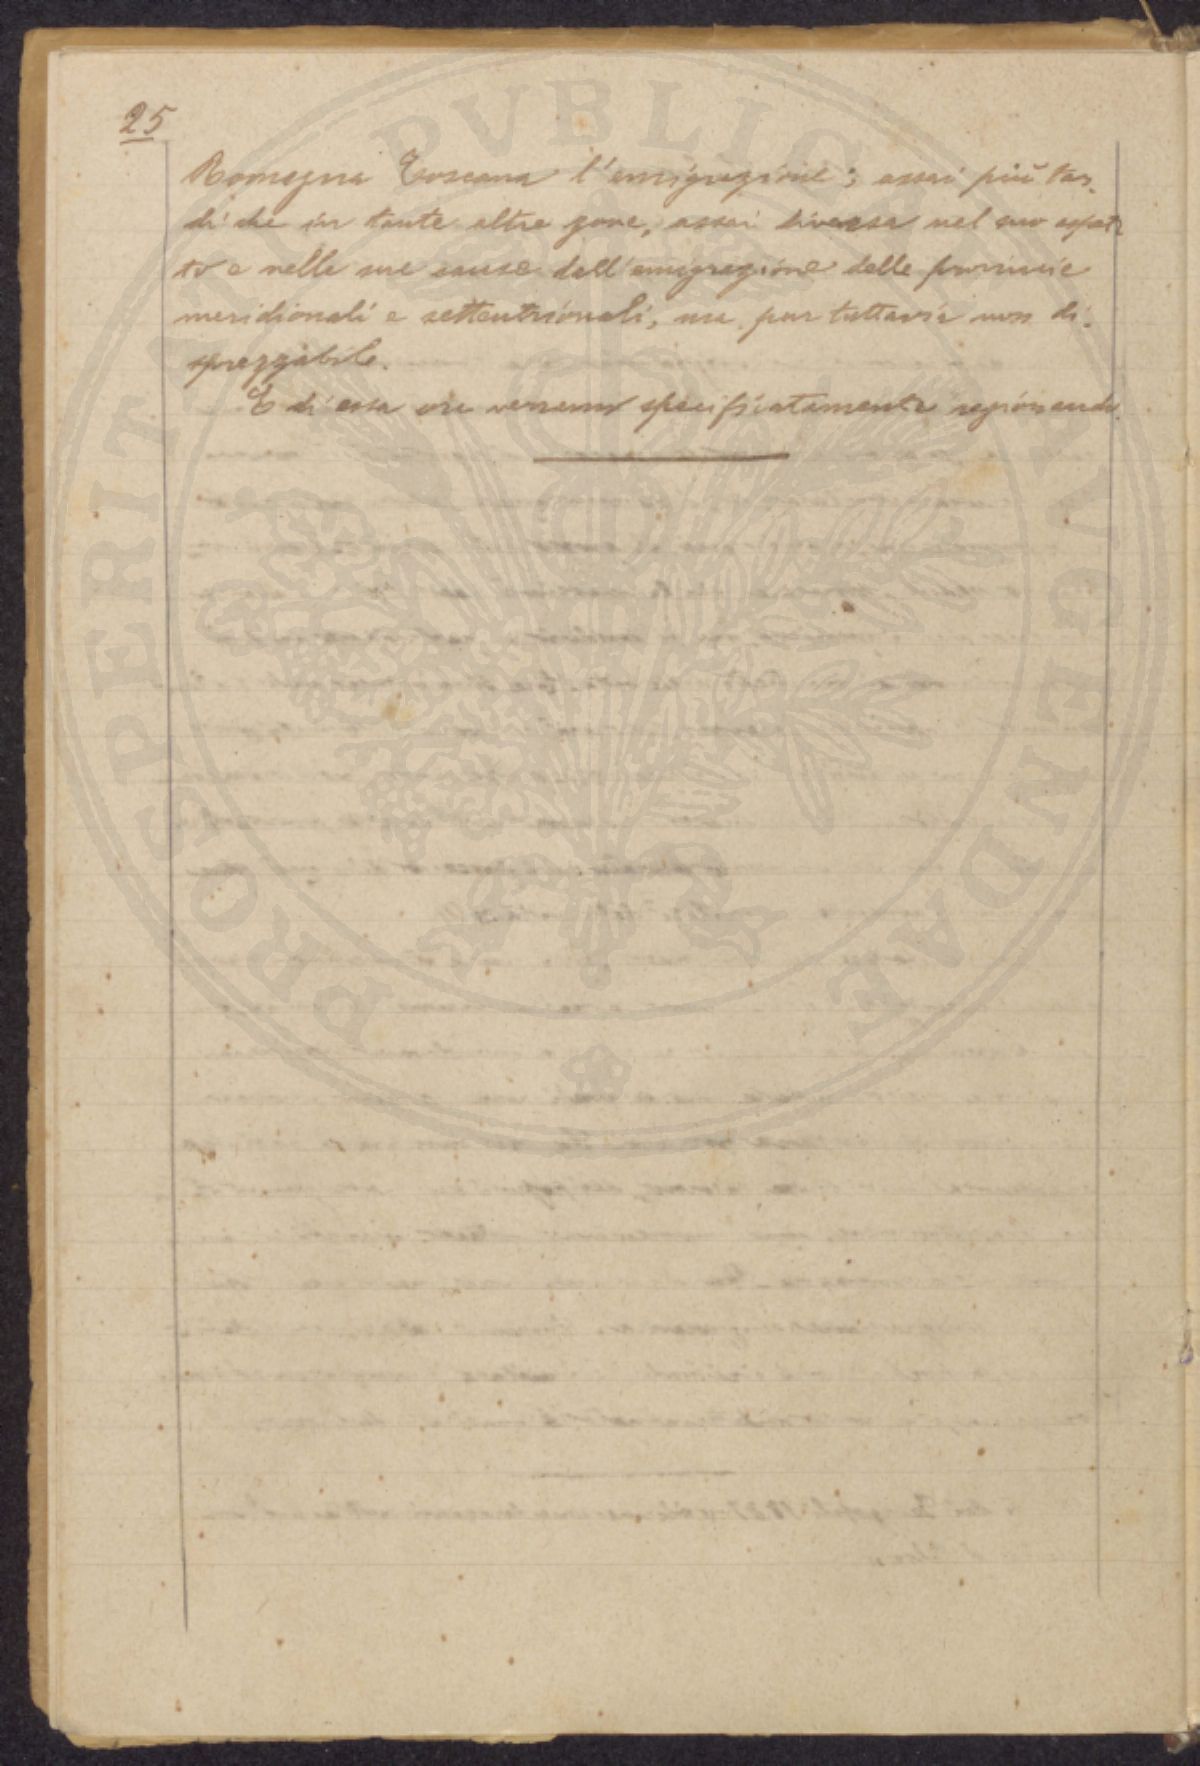 25
Romagna Toscana l'emigrazione; assai più tar-
di che in tante altre zone, assai diversa nel suo aspet-
to e nelle sue cause dall'emigrazione delle provincie
meridionali e settentrionali, ma pur tuttavia non di-
sprezzabile.
E di essa ora verremo specificatamente ragionando.
PROSPERITATI PVBLICAE AVGENDAE